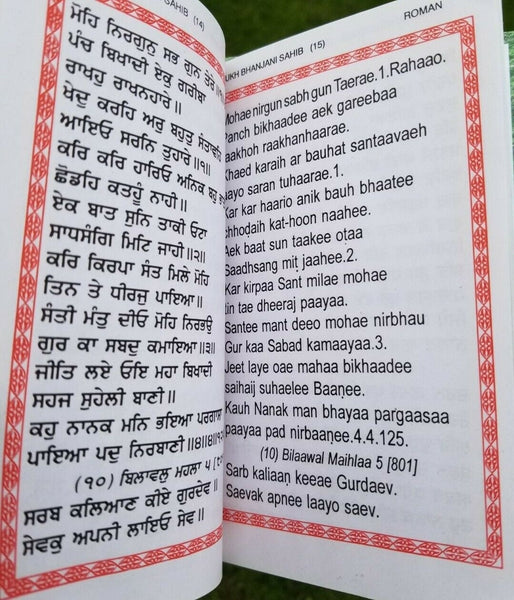 SAHIB (14)
ਮੋਹਿ ਨਿਰਗੁਨ ਸਭ ਗੁਨ ਤੇਰੇ
ਪੰਚ ਬਿਖਾਦੀ ਏਕੁ ਗਰੀਬਾ
ਰਾਖਹੁ ਰਾਖਨਹਾਰੇ॥
ਖੇਦੁ ਕਰਹਿ ਅਰੁ ਬਹੁਤੁ ਸੰਤਾਵਹਿ
ਆਇਓ ਸਰਨਿ ਤੁਹਾਰੇ॥੧॥
ਕਰਿ ਕਰਿ ਹਾਰਿਓ ਅਨਿਕ ਬਹੁ
ਛੋਡਹਿ ਕਤਹੂੰ ਨਾਹੀ॥
ਏਕ ਬਾਤ ਸੁਨਿ ਤਾਕੀ ਓਟਾ
ਸਾਧਸੰਗਿ ਮਿਟਿ ਜਾਹੀ॥੨॥
ਕਰਿ ਕਿਰਪਾ ਸੰਤ ਮਿਲੇ ਮੋਹਿ
ਤਿਨ ਤੇ ਧੀਰਜੁ ਪਾਇਆ॥
ਸੰਤੀ ਮੰਤੁ ਦੀਓ ਮੋਹਿ ਨਿਰਭਉ
ਗੁਰ ਕਾ ਸਬਦੁ ਕਮਾਇਆ॥੩॥
ਜੀਤਿ ਲਏ ਓਇ ਮਹਾ ਬਿਖਾਦੀ
ਸਹਜ ਸੁਹੇਲੀ ਬਾਣੀ॥
ਕਹੁ ਨਾਨਕ ਮਨਿ ਭਇਆ ਪਰਗਾਸਾ
ਪਾਇਆ ਪਦੁ ਨਿਰਬਾਣੀ॥੪॥੪॥
(੧੦) ਬਿਲਾਵਲੁ ਮਹਲਾ ੫
ਸਰਬ ਕਲਿਆਣ ਕੀਏ ਗੁਰਦੇਵ॥
ਸੇਵਕੁ ਅਪਨੀ ਲਾਇਓ ਸੇਵ॥
UKH BHANJANI SAHIB (15) ROMAN
Mohae nirgun sabh gun Taerae.1.Rahaao.
Panch bikhaadee aek gareebaa
aakhoh raakhanhaarae.
Khaed karaih ar bauhat santaavaeh
aayo saran tuhaarae.1.
Kar kar haario anik bauh bhaatee
chhoḍaih kat-hoon naahee.
Aek baat sun taakee oṭaa
Saadhsang miṭ jaahee.2.
Kar kirpaa Sant milae mohae
tin tae dheeraj paayaa.
Santee mant deeo mohae nirbhau
Gur kaa Sabad kamaayaa.3.
Jeet laye oae mahaa bikhaadee
saihaij suhaelee Baaṇee.
Kauh Nanak man bhayaa pargaasaa
paayaa pad nirbaaṇee.4.4.125.
(10) Bilaawal Maihlaa 5 [801]
Sarb kaliaaṇ keeae Gurdaev.
Saevak apnee laayo saev.